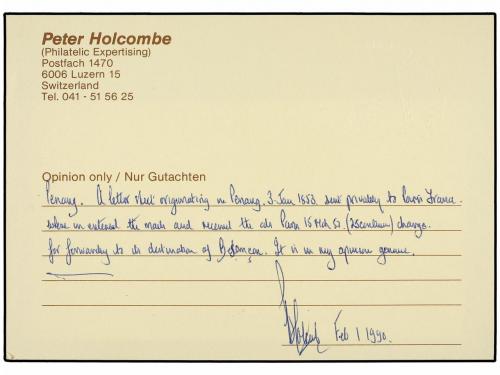 Peter Holcombe
(Philatelic Expertising)
Postfach 1470
6006 Luzern 15
Switzerland
Tel. 041 - 51 56 25
Opinion only / Nur Gutachten
Penang. A letter sheet originating in Penang 3 Jan 1853 sent privately to Paris France
where it entered the mails and received the cds Paris 15 Mch 53 (25 centimes) charge
for forwarding to its destination of Besançon. It is in my opinion genuine.
Feb 1 1990.